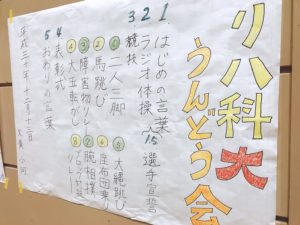 リハ科大
うんどう会
1. はじめの言葉
2. ラジオ体操
1.5 選手宣誓
3. 競技
① 二人三脚
② 馬跳び
③ 障害物リレー
④ 大玉転がし
⑤ 大縄跳び
⑥ 座布団
⑦ 腕相撲
⑧
リレー
4 表彰式
5 おわりの言葉
平成三十年十二月十二日